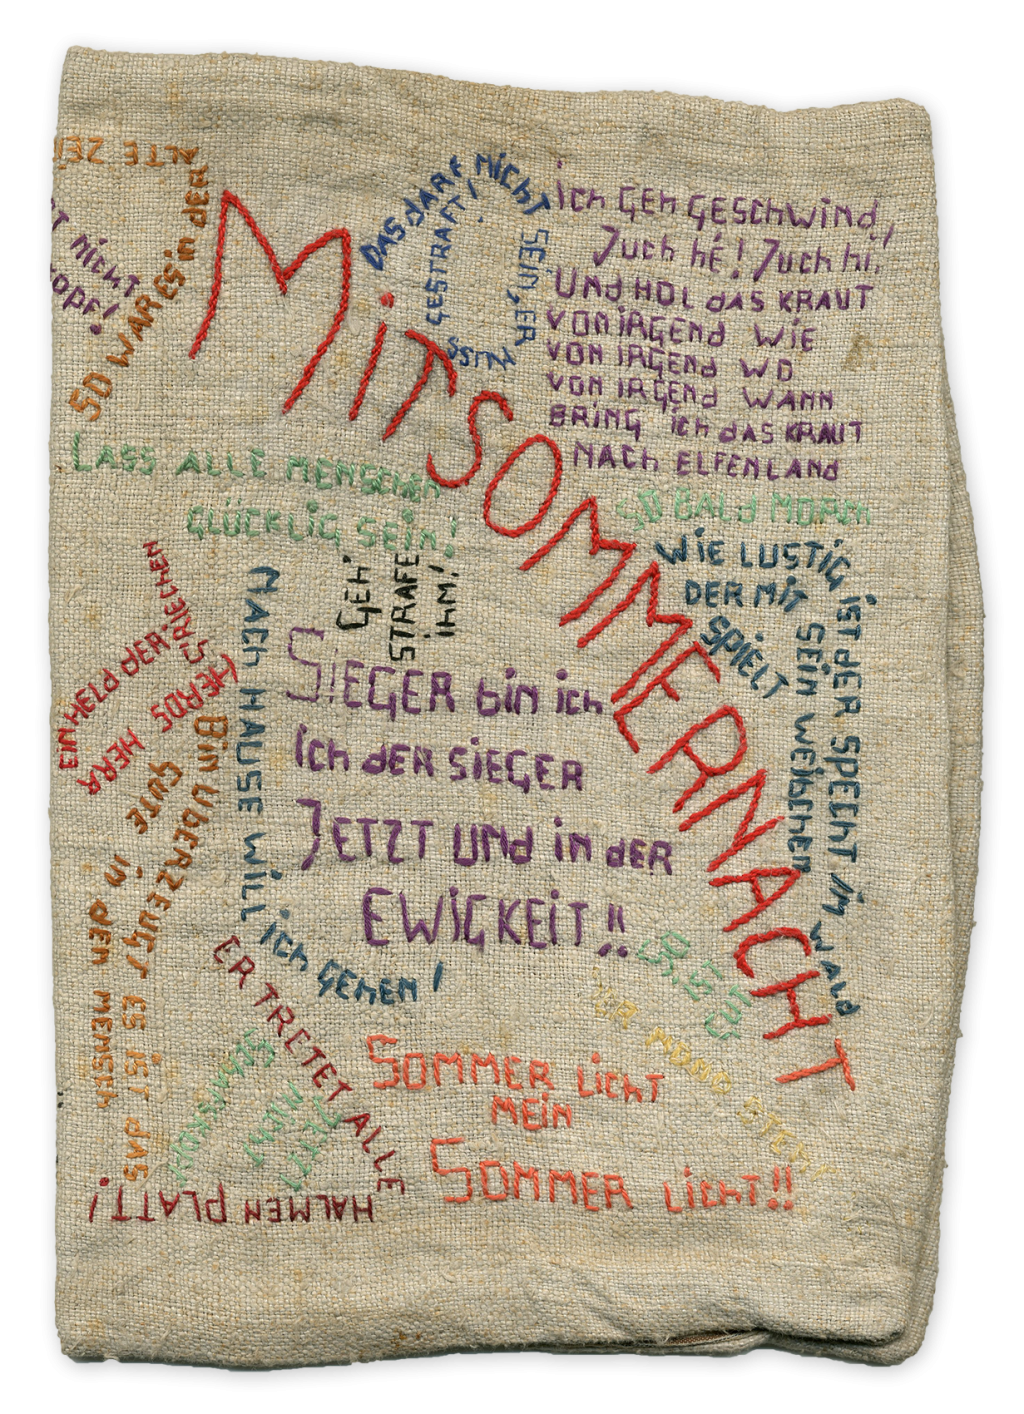 ALTE ZEI
SO WAR ES in dER
T NiChT
OPF!
MiTSOMMERNACHT
DAS dARF NichT SEiN, ER MUSS GESTRAFT!
ich GEh GESChWiNd,
Juch hé! Juch hi!
UNd HOL dAS KRAUT
VON iRGENd WiE
VON iRGENd WO
VON iRGENd WANN
BRiNG ich dAS KRAUT
NACh ELFENLANd
LASS ALLE MENSChEN
GLÜCKLiG SEiN!
SO BALd
WiE LUSTiG iST dER SPEChT iM WALd
DER MiT SEiN WEibchEN
SPiELT
GEh'
STRAFE
ihM!
EiN hELd dER GRiEChEN
HERdS HERA
NACh HAUSE WiLL ich GEhEN!
SiEGER bin ich
ich dER SiEGER
JETZT UNd iN dER
EWiGKEiT!!
BiN UbERZEUGT ES iST dAS
GUTE iN dEN MENSCh
ER TRETET ALLE
HALMEN PLATT!
SO, iST GUT
MOND STEh!
SOMMER LichT
MEiN
SOMMER LichT!!